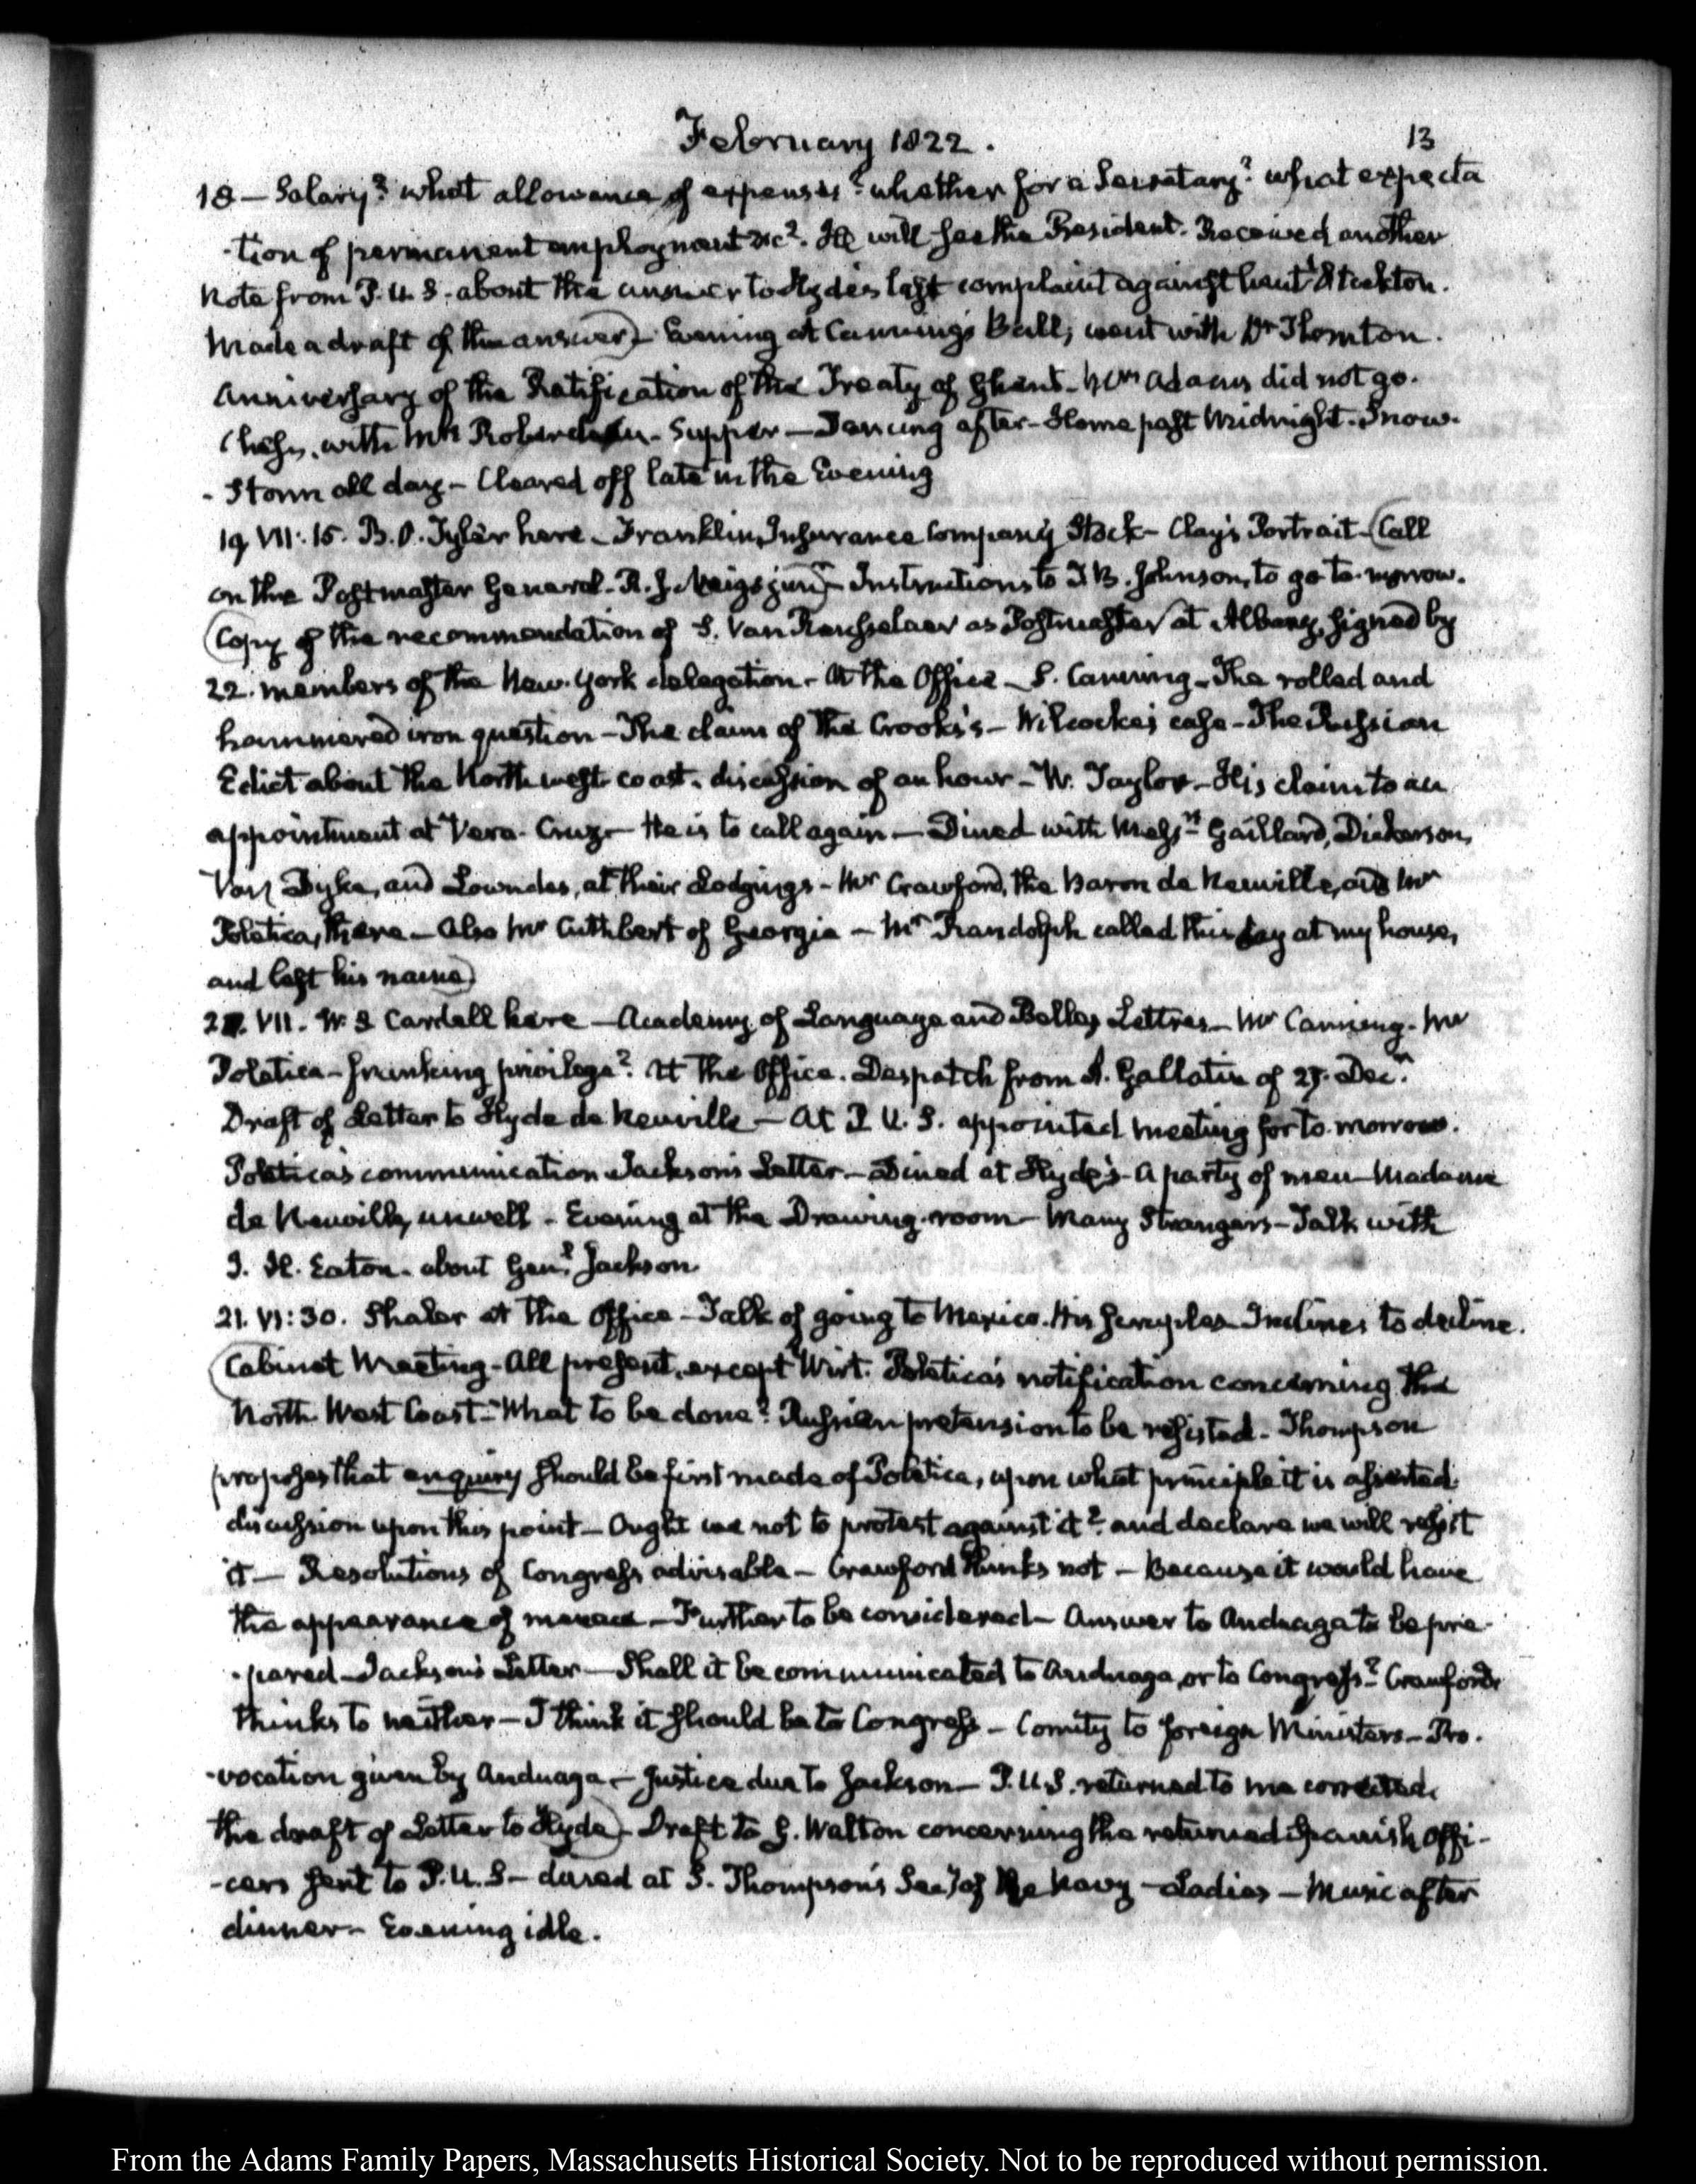 February 1822.
13
18 — Salary? what allowance of expenses? whether for a Secretary? what expecta
-tion of permanent employment &c?. He will see the President. Received another
Note from P. U. S. about the answer to Hyde's last complaint against Lieut. Stockton.
Made a draft of the answer) — Evening at Canning's Ball; went with Dr Thornton.
Anniversary of the Ratification of the Treaty of Ghent — Mrs Adams did not go.
Chess, with Mrs Roberdeau — Supper — Dancing after — Home past Midnight. Snow-
-Storm all day — Cleared off late in the Evening
19. VII:15. B. O. Tyler here — Franklin Insurance Company Stock — Clay's Portrait — (Call
on the Postmaster General — R. J. Meigs junr) — Instructions to J B. Johnson, to go to-morrow.
(Copy of the recommendation of S. Van Rensselaer as Postmaster at Albany, signed by
22. members of the New-York delegation — At the Office — S. Canning — The rolled and
hammered iron question — The claim of the Crooks's — Wilcocke's case — The Russian
Edict about the North west coast. discussion of an hour — W. Taylor — His claim to an
appointment at Vera-Cruz — He is to call again — Dined with Messrs Gaillard, Dickerson,
Van Dyke, and Lowndes, at their Lodgings — Mr Crawford, the Baron de Neuville, and Mr
Poletica, there — Also Mr Cuthbert of Georgia — Mr Randolph called this day at my house,
and left his name)
20. VII. W. S Cardell here — Academy of Language and Belles Lettres — Mr Canning — Mr
Poletica — franking privilege? At the Office. Despatch from A. Gallatin of 27. Decr
Draft of Letter to Hyde de Neuville — At P. U. S. appointed meeting for to-morrow.
Poletica's communication Jackson's Letter — Dined at Hyde's — A party of men — Madame
de Neuville, unwell — Evening at the Drawing-room — Many Strangers — Talk with
J. H. Eaton — about Genl Jackson
21. VI:30. Shaler at the Office — Talk of going to Mexico. His scruples Inclines to decline.
(Cabinet Meeting — All present, except Wirt. Poletica's notification concerning the
North-West Coast — What to be done? Russian pretension to be resisted — Thompson
proposes that enquiry should be first made of Poletica, upon what principle it is asserted
discussion upon this point — Ought we not to protest against it? and declare we will resist
it — Resolutions of Congress advisable — Crawford thinks not — Because it would have
the appearance of menace — Further to be considered — Answer to Anduaga to be pre-
-pared — Jackson's Letter — Shall it be communicated to Anduaga, or to Congress? Crawford
thinks to neither — I think it should be to Congress — Comity to foreign Ministers — Pro-
-vocation given by Anduaga — Justice due to Jackson — P. U. S. returned to me corrected
the draft of Letter to Hyde) — Draft to G. Walton concerning the returned Spanish Offi-
-cers sent to P. U. S — dined at S. Thompson's Secy of the Navy — Ladies — Music after
dinner — Evening idle.
From the Adams Family Papers, Massachusetts Historical Society. Not to be reproduced without permission.